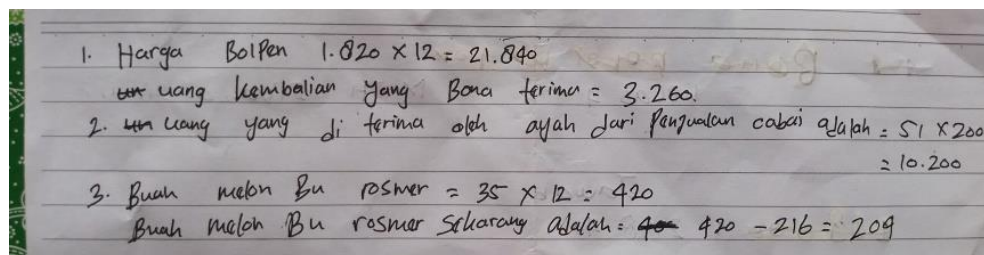 1. Harga Bolpen 1.820 × 12 = 21.840
uang kembalian yang Bona terima = 3.260.
2. uang yang di terima oleh ayah dari Penjualan cabai adalah = 51 × 200
= 10.200
3. Buah melon Bu rosmer = 35 × 12 = 420
Buah melon Bu rosmer Sekarang adalah = 420 - 216 = 204